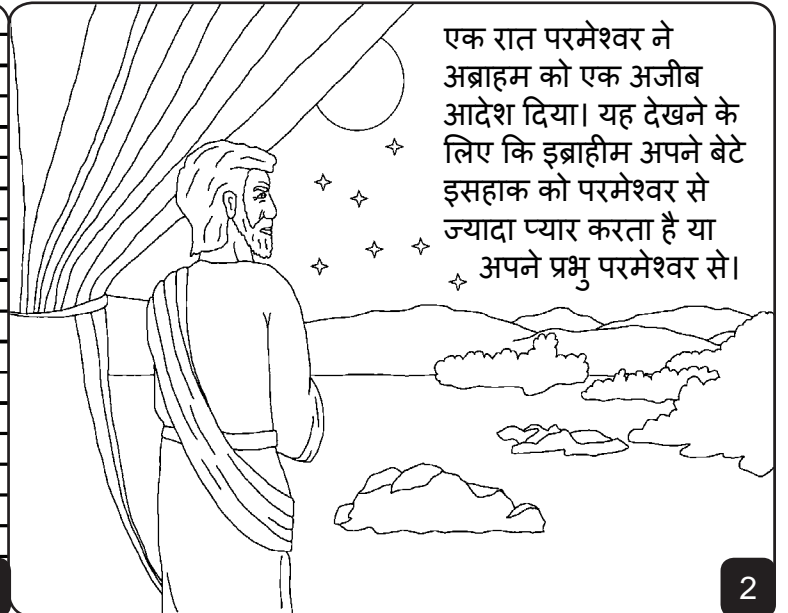 एक रात परमेश्वर ने
अब्राहम को एक अजीब
आदेश दिया। यह देखने के
लिए कि इब्राहीम अपने बेटे
इसहाक को परमेश्वर से
ज्यादा प्यार करता है या
अपने प्रभु परमेश्वर से।
2